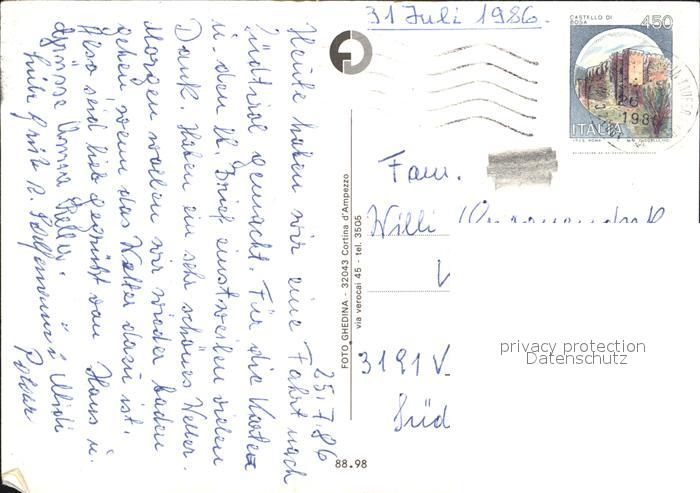 31 Juli 1986.
CASTELLO DI
ROSA
450
ITALIA
1986
25.7.86
Heute haben wir eine Fahrt nach
Südtirol gemacht. Für die Karte
u. den lb. Brief einstweilen vielen
Dank. Haben ein sehr schönes Wetter.
Morgen wollen wir wieder baden
gehen, wenn das Wetter dazu ist.
Also seid lieb gegrüßt von Hans u.
Midi
FOTO GHEDINA - 32043 Cortina d'Ampezzo
via verocai 45 - tel. 3505
88.98
Fam.
Willi
3181 V
Süd
privacy protection
Datenschutz